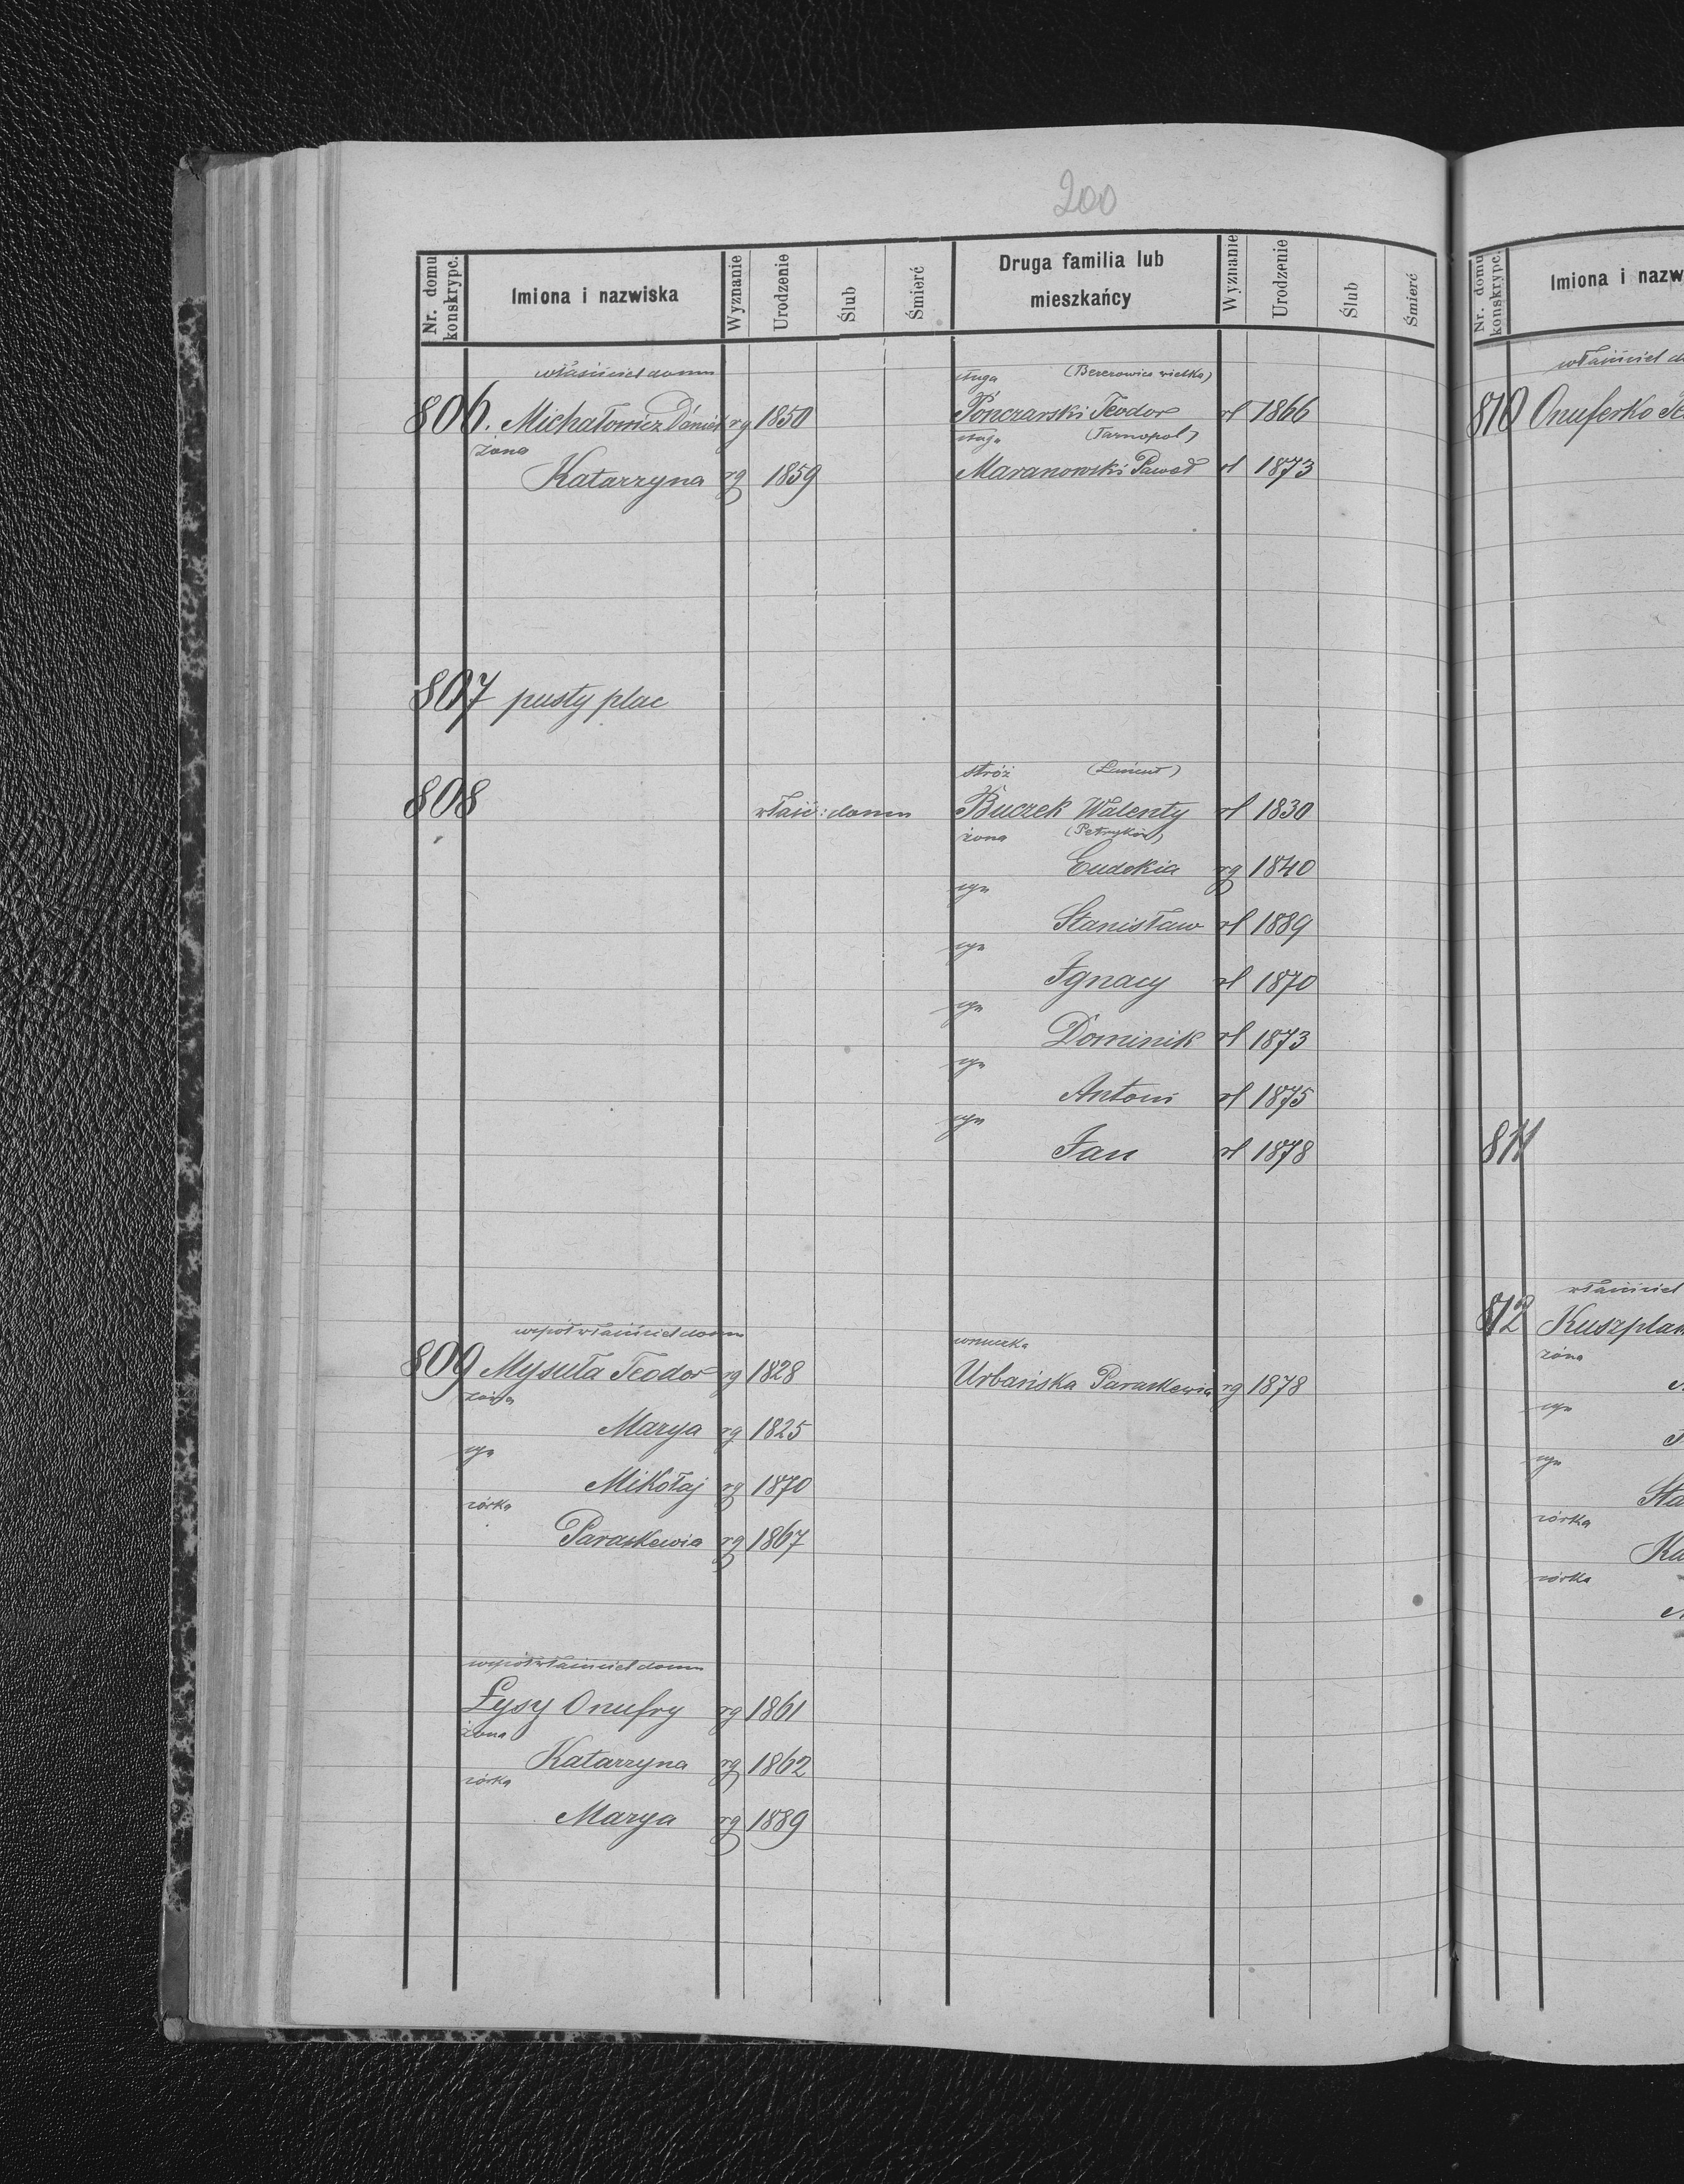 200
Nr. domu konskrypc.
Imiona i nazwiska
Wyznanie
Urodzenie
Ślub
Śmierć
Druga familia lub mieszkańcy
Wyznanie
Urodzenie
Ślub
Śmierć
właściciel domu
806. Michałowicz Daniel rg 1850
żona
Katarzyna rg 1859
sługa (Berezowica wielka)
Ponczarski Teodor rł 1866
sługa (Tarnopol)
Maranowski Paweł rł 1873
807 pusty plac
808 właść: domu
stróż
Buczek Walenty rł 1830
żona
Eudokia rg 1840
syn
Stanisław rł 1889
syn
Ignacy rł 1870
syn
Dominik rł 1873
syn
Antoni rł 1875
syn
Jan rł 1878
współwłaściciel domu
809 Mysuła Teodor rg 1828
żona
Marya rg 1825
syn
Mikołaj rg 1870
córka
Paraskewia rg 1867
wnuczka
Urbańska Paraskewia rg 1878
współwłaściciel domu
Łysy Onufry rg 1861
żona
Katarzyna rg 1862
córka
Marya rg 1889
Nr. domu konskrypc.
Imiona i nazw
właściciel
810 Onuferko
811
właściciel
812 Kuszplan
żona
syn
syn
Sta
córka
Ka
córka